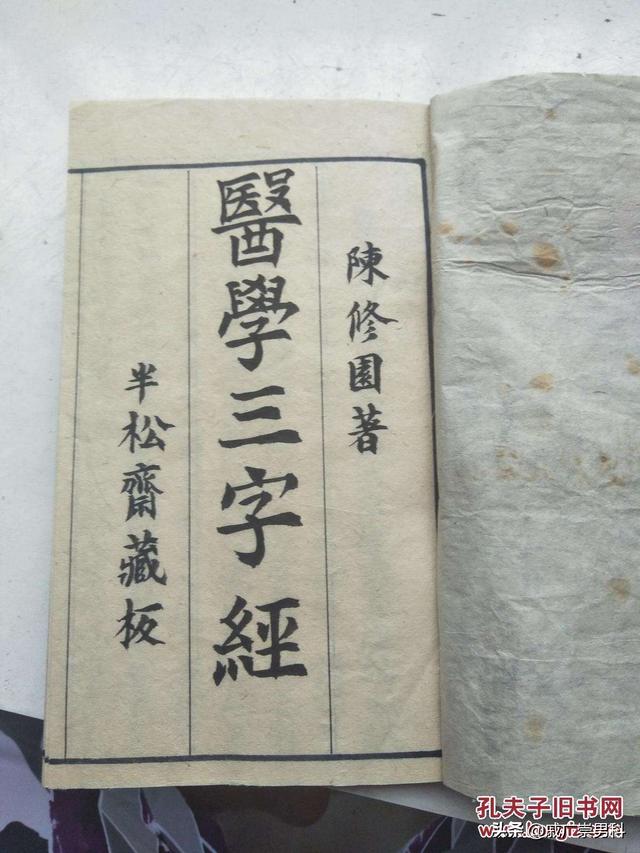 陳修園著
醫學三字經
半松齋藏板
孔夫子旧书网
头条@戚广崇男科